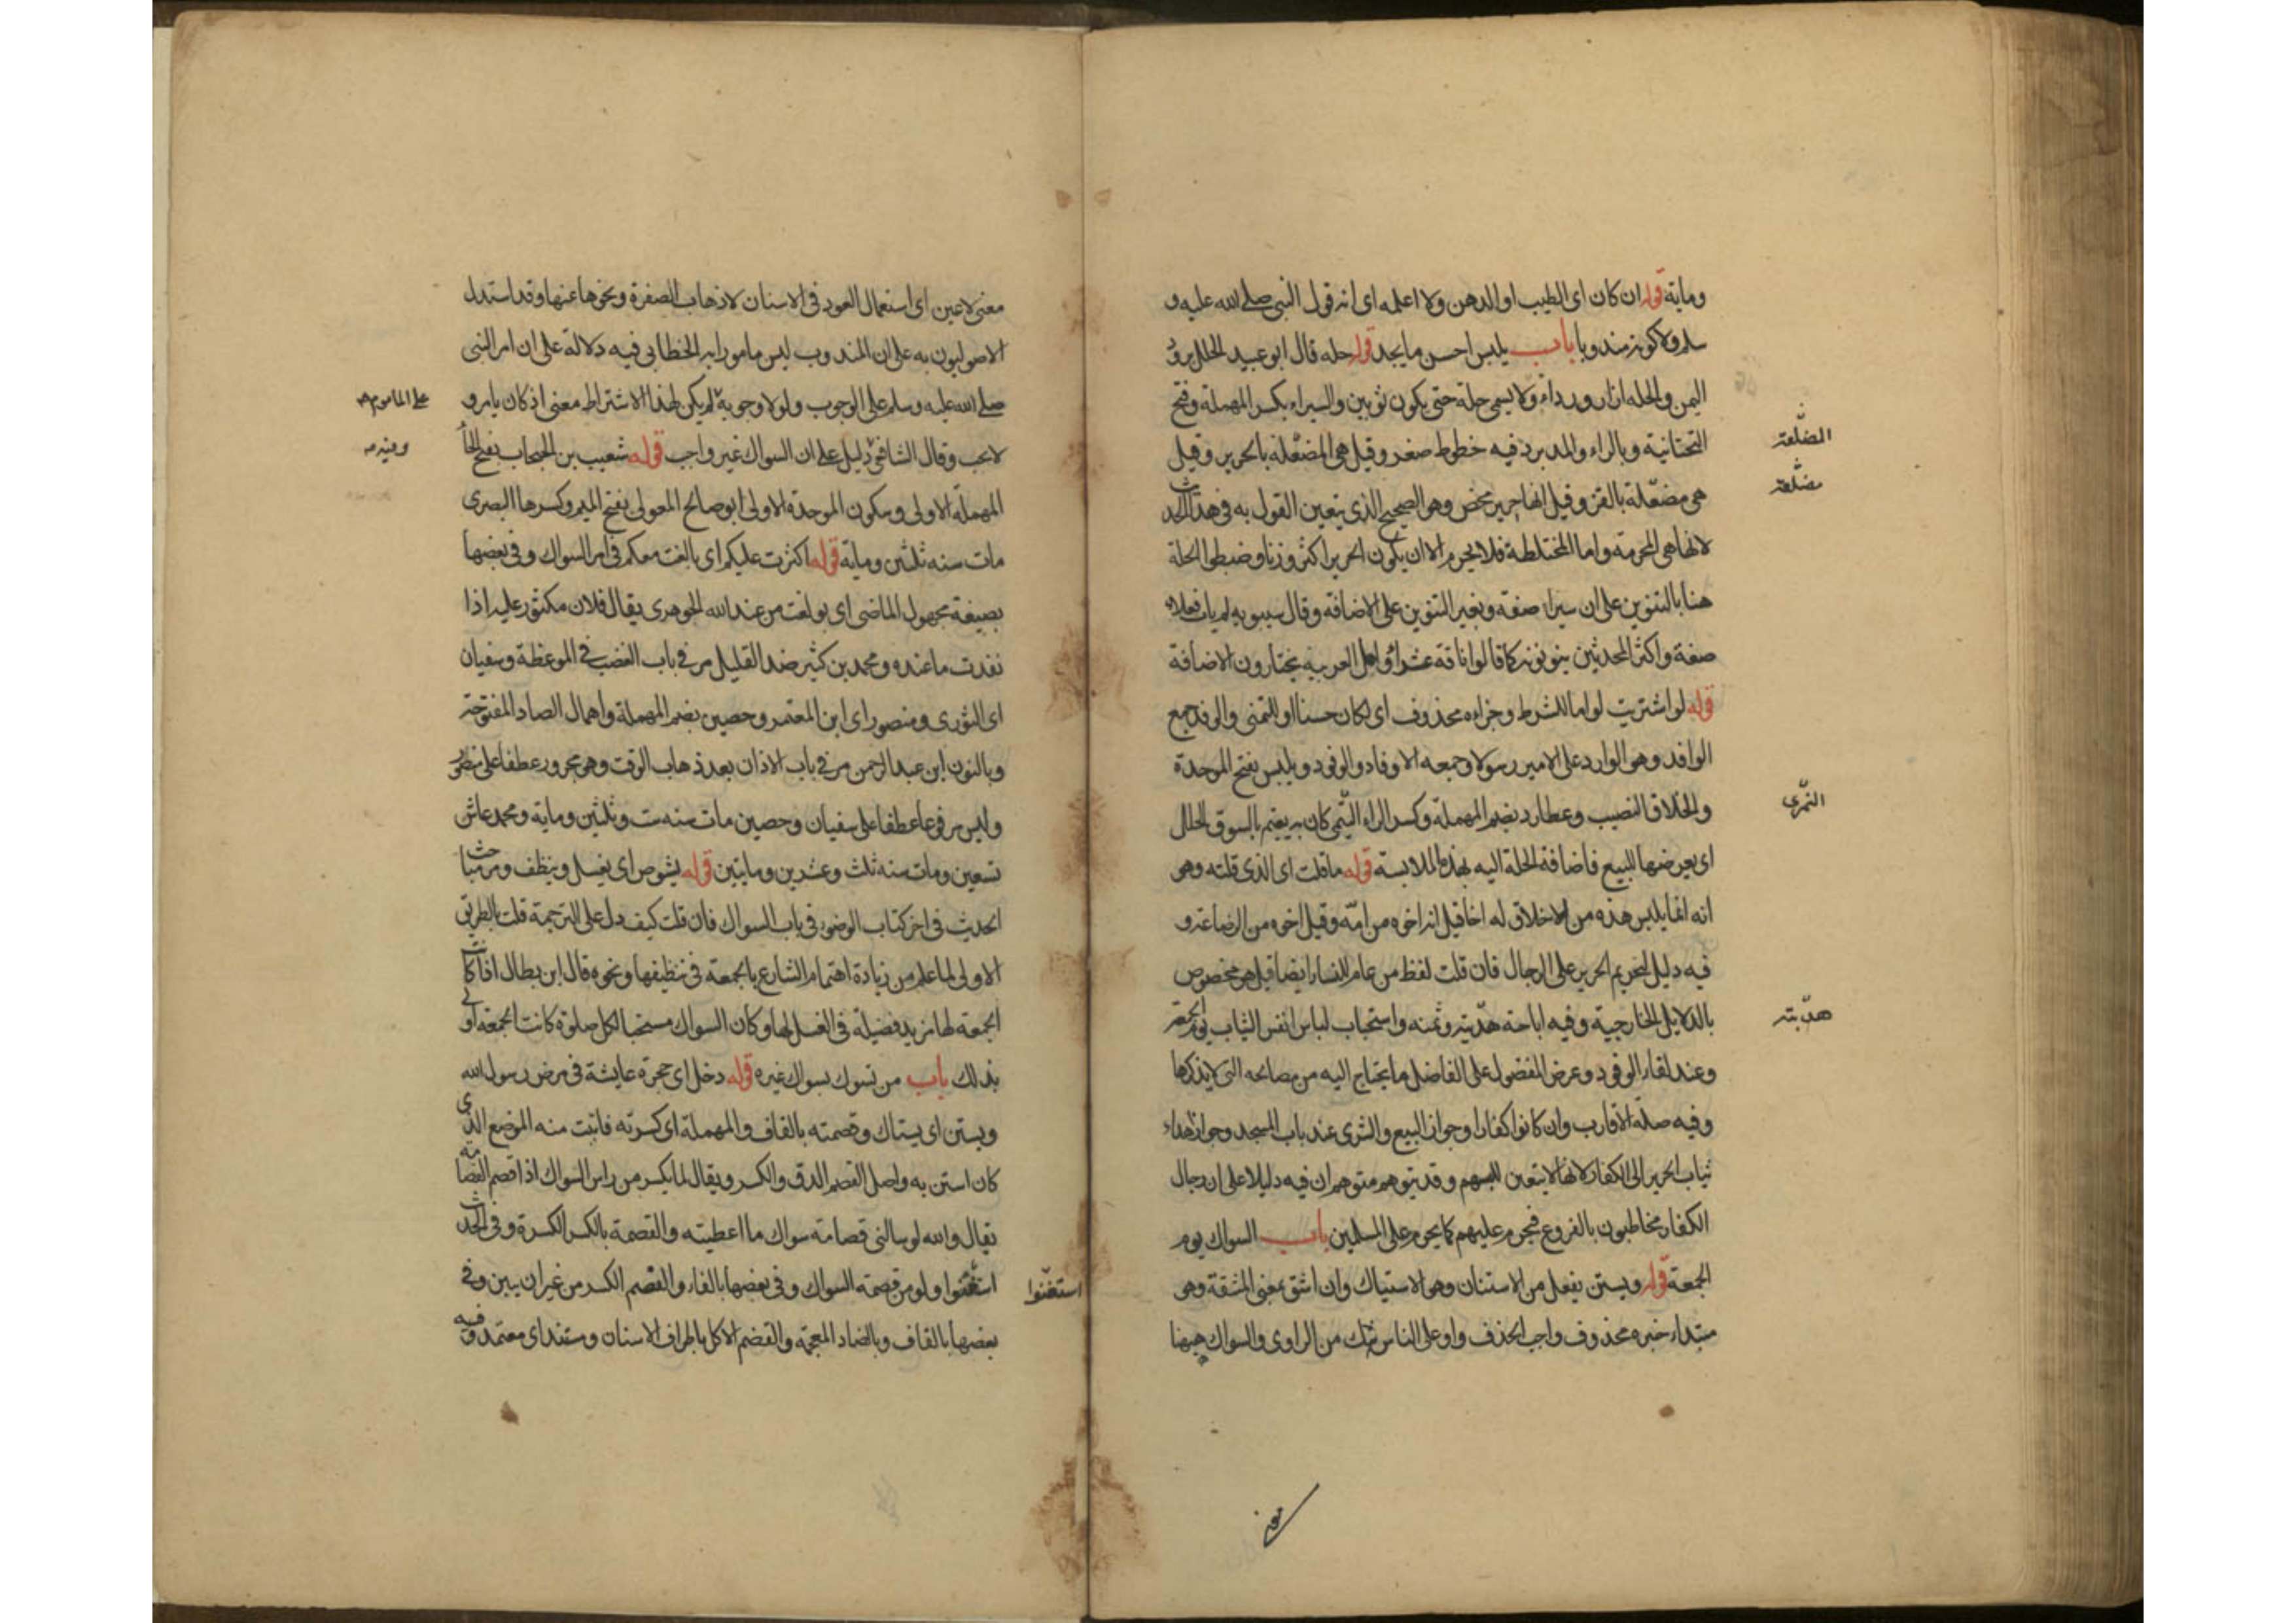 وماية قوله ان كان اى الطيب او الدهن ولا اعلمه اى انه قول النبى صلى الله عليه و
سلم ولا كونه مندوبا باب يلبس احسن ما يجد قوله حله قال ابو عبيد الحلل برود
اليمن والحله ازار ورداء ولا يسمى حلة حتى يكون ثوبين والسيراء بكسر المهملة وفتح
التحتانية وبالراء والمد برد فيه خطوط صفر وقيل هى المضعّلة بالحرير وقيل
المضلّعة
هى مضعّلة بالقز وقيل انها حرير محض وهو الصحيح الذى يتعين القول به فى هذا الحديث
مضلّعة
لانها هى المحرمة واما المختلطة فلا يحرم الا ان يكون الحرير اكثر وزنا وضبطوا الحلة
هنا بالتنوين على ان سيراء صفة وبغير التنوين على الاضافة وقال سيبويه لم يات فعلاء
صفة واكثر المحدثين ينونونه كما قالوا ناقة عشراء واهل العربية يختارون الاضافة
قوله لو اشتريت لو اما للشرط وجزاءه محذوف اى لكان حسنا او للتمنى والوفد جمع
الوافد وهو الوارد على الامير رسولا وجمعه الاوفاد والوفود ويلبس بفتح الموحدة
والخلاق النصيب وعطارد بضم المهملة وكسر الراء التّمى كان يقيم بالسوق الحلل
التّمرى
اى يعرضها للبيع فاضافة الحلة اليه بهذه الملابسة قوله ما قلت اى الذى قلته وهو
انه انما يلبس هذه من لا خلاق له اخا قيل انه اخوه من امّه وقيل اخوه من الرضاعة و
فيه دليل لتحريم الحرير على الرجال فان قلت لفظ من عام للنساء ايضا قيل هو مخصوص
بالدلايل الخارجية وفيه اباحة هدّيته وثمنه واستحباب لباس انفس الثياب يوم الجمعة
هدّيته
وعند لقاء الوفود وعرض المفضول على الفاضل ما يحتاج اليه من مصالحه التى لا يذكرها
وفيه صلة الاقارب وان كانوا كفارا وجواز البيع والشرى عند باب المسجد وجواز اهداء
ثياب الحرير الى الكفار لانها لا يتعين للبسهم وقد يتوهم متوهم ان فيه دليلا على ان رجال
الكفار مخاطبون بالفروع فيحرم عليهم كما يحرم على المسلمين باب السواك يوم
الجمعة قوله ويستن يفعل من الاستنان وهو الاستياك وان اشق بمعنى المشقة وهو
مبتداء خبره محذوف واجب الحذف واو على الناس شك من الراوى والسواك ههنا
معنى لا عين اى استعمال العود فى الاسنان لاذهاب الصفرة ونحوها عنها وقد استدل
الاصوليون به على ان المندوب ليس مامورا به الخطابى فيه دلالة على ان امر النبى
صلى الله عليه وسلم على الوجوب ولولا وجوبه لم يكن لهذا الاشتراط معنى اذ كان يامر و
على المامور
لا يجب وقال الشافعى دليل على ان السواك غير واجب قوله شعيب بن الحبحاب بفتح الحاء
وفيه
المهملة الاولى وسكون الموحدة الاولى ابو صالح المعولى بفتح الميم وكسرها البصرى
مات سنه ثلثين وماية قوله اكثرت عليكم اى بالغت معكم فى امر السواك وفى بعضها
بصيغة مجهول الماضى اى بولغت من عند الله الجوهرى يقال فلان مكثور عليه اذا
نفدت ما عنده ومحمد بن كثير ضد القليل مر فى باب الغضب فى الموعظة وسفيان
اى الثورى ومنصور اى ابن المعتمر وحصين بضم المهملة واهمال الصاد المفتوحة
وبالنون ابن عبد الرحمن مر فى باب الاذان بعد ذهاب الوقت وهو مجرور عطفا على منصور
وليس مرفوعا عطفا على سفيان وحصين مات سنه ست وثلثين وماية ومحمد عاش
تسعين ومات سنه ثلث وعشرين ومايتين قوله يشوص اى يغسل وينظف ومر مباحث
الحديث فى اخر كتاب الوضوء فى باب السواك فان قلت كيف دل على الترجمة قلت بالطريق
الاولى لما علم من زيادة اهتمام الشارع بالجمعة فى تنظيفها ونحوه قال ابن بطال اذا كانت
الجمعة لها مزيد فضيلة فى الغسل لها وكان السواك مستحبا لكل صلوة كانت الجمعة اولى
بذلك باب من تسوك بسواك غيره قوله دخل اى حجرة عايشة فى مرض رسول الله
ويستن اى يستاك وقصمته بالقاف والمهملة اى كسرته فابنت منه الموضع الذى
كان استن به واصل القصم الدق والكسر ويقال لما يكسر من راس السواك اذا قصم القصامة
يقال والله لو سالنى قصامة سواك ما اعطيته والقصمة بالكسر الكسرة وفى الحديث
استغنوا ولو من قصمة السواك وفى بعضها بالفاء والفصم الكسر من غير ان يبين وفى
استغنوا
بعضها بالقاف وبالضاد المعجمة والقضم الاكل باطراف الاسنان ومستند اى معتمد وفيه